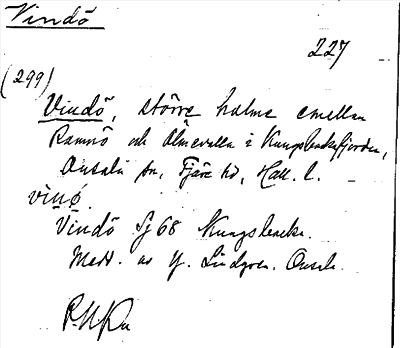 Vindö
227
(299)
Vindö, större holme emellan
Ramnö och Ölmevalla i Kungsbackafjorden,
Onsala sn, Fjäre hd, Hall. l.
vinø.
Vindö Sj 68 Kungsbacka.
Medd. av Y. Lindgren. Onsala.